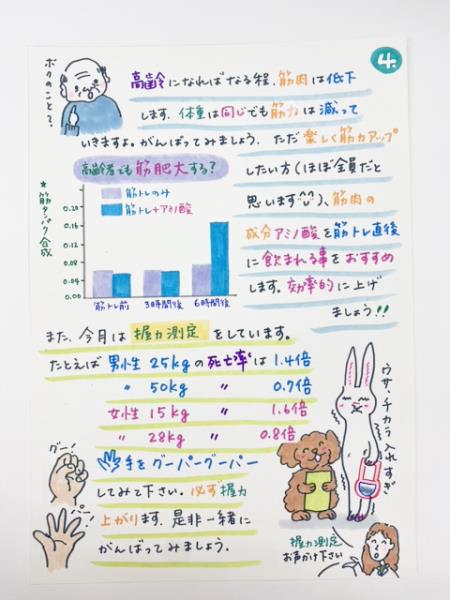 4.
ボクのこと?
高齢になればなる程、筋肉は低下
します。体重は同じでも筋力は減って
いきますよ。がんばってみましょう。ただ楽しく筋力アップ
したい方(ほぼ全員だと
思います^^)、筋肉の
成分アミノ酸を筋トレ直後
に飲まれる事をおすすめ
します。効率的に上げ
ましょう!!
高齢者でも筋肥大する?
★筋タンパク合成
筋トレのみ
筋トレ+アミノ酸
0.20
0.16
0.12
0.08
0.04
0.00
筋トレ前 3時間後 6時間後
また、今月は握力測定をしています。
たとえば男性25kgの死亡率は1.4倍
〃 50kg 〃 0.7倍
女性15kg 〃 1.6倍
〃 28kg 〃 0.8倍
グー!
パー!
手をグーパーグーパー
してみて下さい。必ず握力
上がります。是非一緒に
がんばってみましょう。
ウサ、チカラ入れすぎ
握力測定
お声かけ下さい